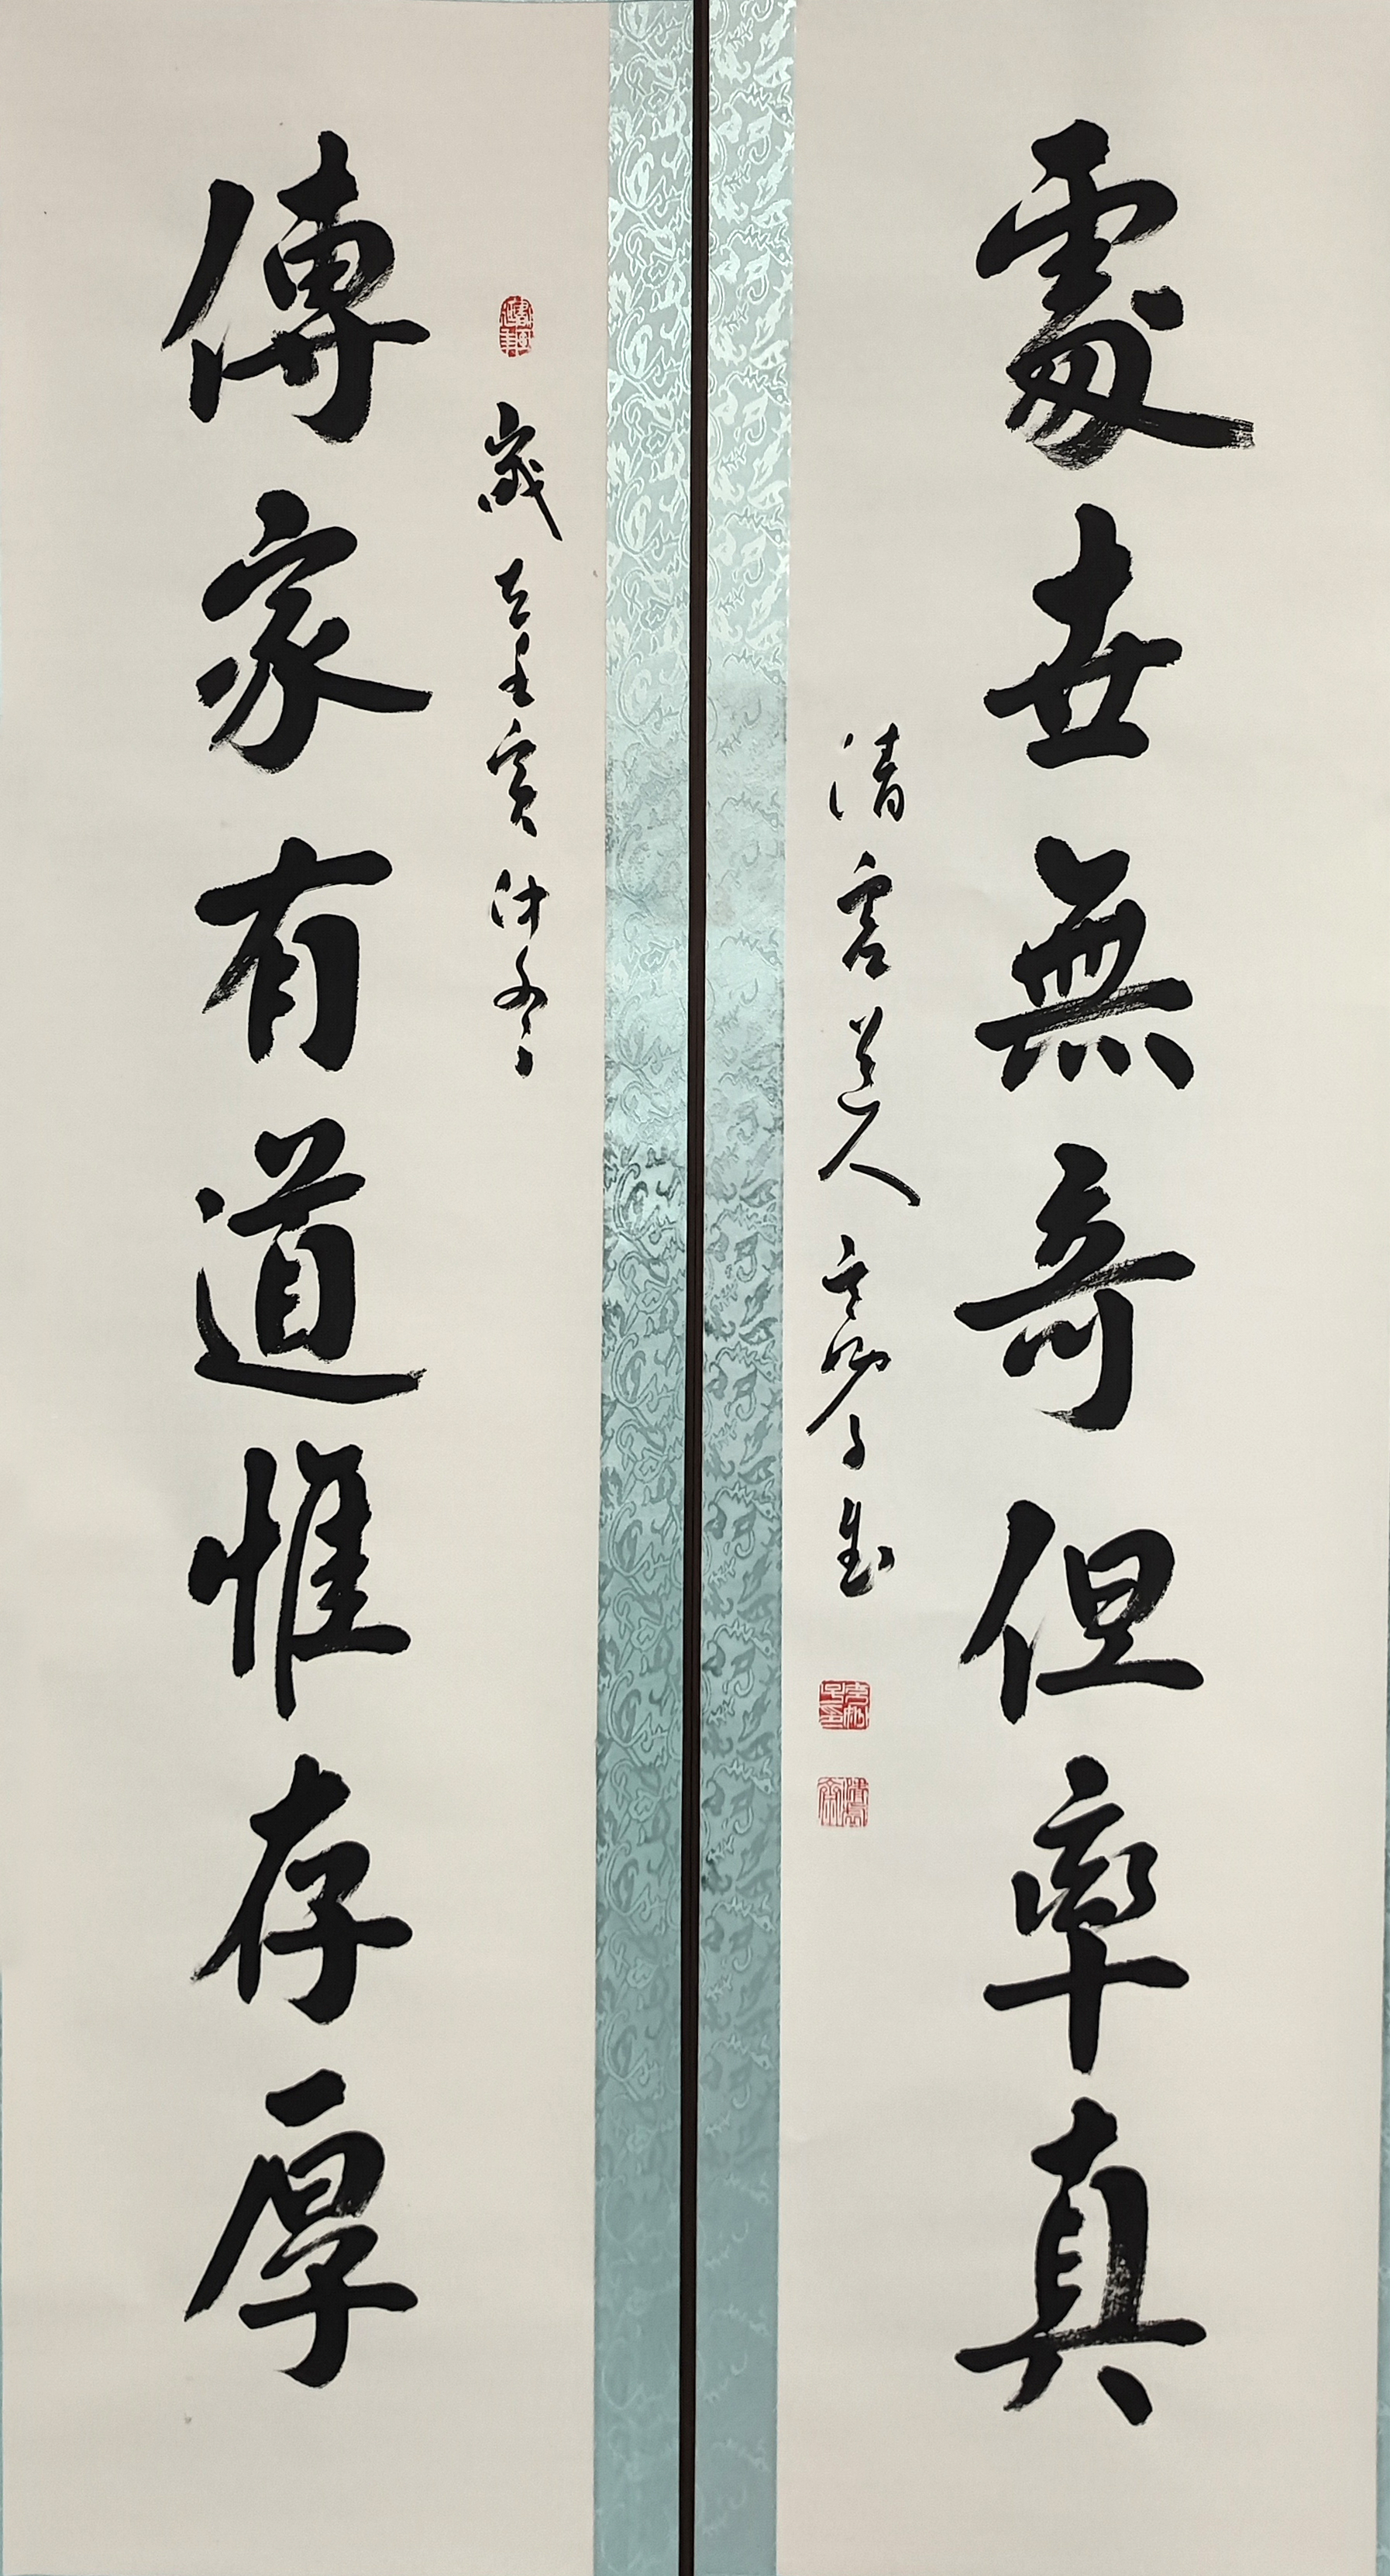 處世無奇但率真
清虛道人
傳家有道惟存厚
歲在壬寅仲冬